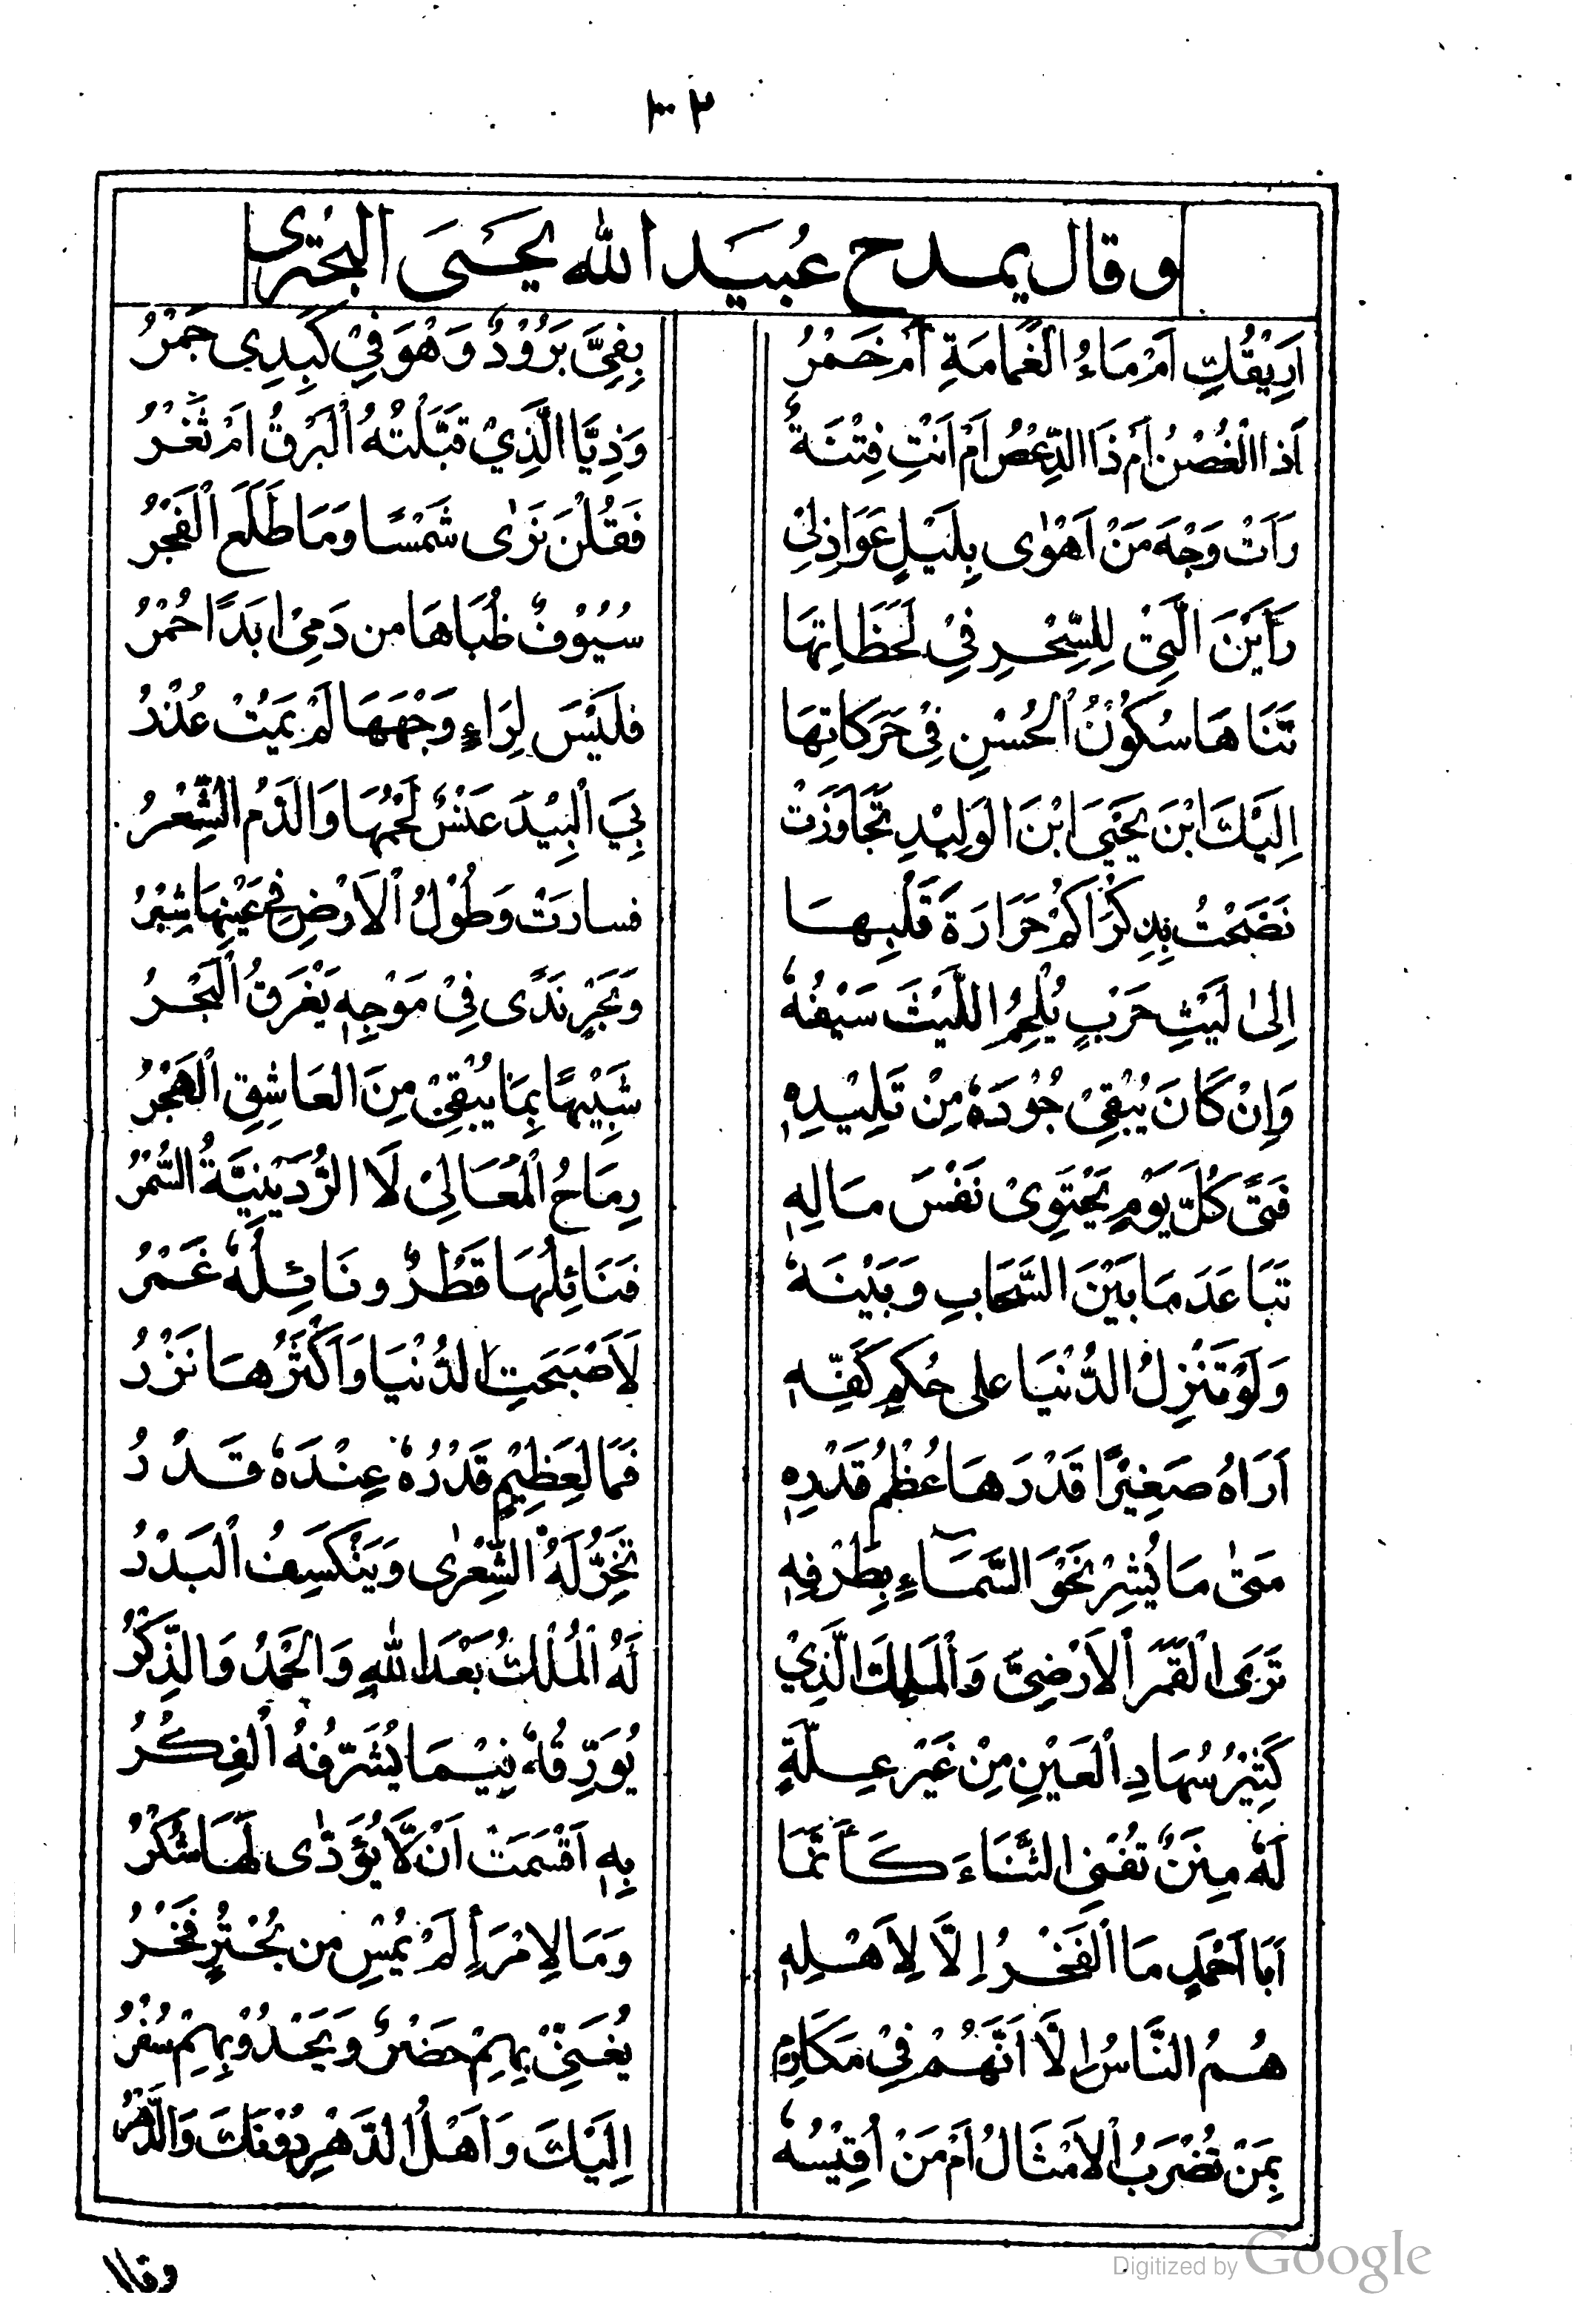 ١٠٣
وقال يمدح عُبَيَد الله يحَيىَ البحترى
اَرِيْقُكِ اَمْ مَاءُ الْغَمَامَةِ اَمْ خَمْرُ بِفِيَّ بَرُوْدٌ وَهْوَ فِيْ كَبِدِي جَمْرُ
اَذَا الْغُصْنُ اَمْ ذَا الدِّعْصُ اَمْ اَنْتِ فِتْنَةٌ وَذِيَّا الَّذِيْ قَبَّلْتُهُ الْبَرْقُ اَمْ ثَغْرُ
رَأتْ وَجْهَ مَنْ اَهْوٰى بِلَيْلٍ عَوَاذِلِيْ فَقُلْنَ نَرٰى شَمْسًا وَمَا طَلَعَ الْفَجْرُ
رَأَيْنَ الَّتِيْ لِلسِّحْرِ فِيْ لَحَظَاتِهَا سُيُوْفٌ ظُبَاهَا من دَمِيْ اَبَدًا حُمْرُ
تَنَاهَا سُكُوْنُ الْحُسْنِ فِيْ حَرَكَاتِهَا فلَيْسَ لِرَاءٍ وَجْهَهَا لَمْ يَمُتْ عُذْرُ
اِلَيْكَ ابْنَ يَحْيَى ابْنَ الوَلِيْدِ تَجَاوَزَتْ بِيَ الْبِيْدَ عَنْسٌ لَحْمُهَا وَالدَّمُ الشِّعْرُ
نَضَحْتُ بِذِكْرَاكُمْ حَرَارَةَ قَلْبِهَا فسارَتْ وَطُوْلُ الْاَرْضِ فِيْ عَيْنِهَا شِبْرُ
اِلىٰ لَيْثِ حَرْبٍ يُلْحِمُ اللَّيْثَ سَيْفُهٗ وَبَحْرِ نَدًى فِيْ مَوْجِهٖ يَغْرَقُ الْبَحْرُ
وَاِنْ كَانَ يُبْقِيْ جُوْدُهٗ مِنْ تَلِيْدِهٖ شَبِيْهًا بِمَا يُبْقِيْ مِنَ العَاشِقِ الْهَجْرُ
فَتًى كُلَّ يَوْمٍ يَحْتَوِىْ نَفْسَ مَالِهٖ رِمَاحُ الْمَعَالِيْ لَا الرُّدَيْنِيَّةُ السُّمْرُ
تَبَاعَدَ مَا بَيْنَ السَّحَابِ وَبَيْنَهٗ فَنَائِلُهَا قَطْرٌ ونَائِلُهٗ غَمْرُ
وَلَوْ تَنْزِلُ الدُّنْيَا على حُكمِ كَفِّهٖ لَاَصْبَحَتِ الدُّنْيَا وَاَكْثَرُهَا نَزْرُ
اَرَاهُ صَغِيْرًا قَدْرَهَا عُظْمُ قَدْرِهٖ فَمَا لِعَظِيْمٍ قَدْرُهٗ عِنْدَهٗ قَدْرُ
مَتىٰ مَا يُشِرْ نَحْوَ السَّمَاءِ بِطَرْفِهٖ تَخِرُّ لَهُ الشِّعْرٰى وَيَنْكَسِفُ الْبَدْرُ
تَرَى الْقَمَرَ الْاَرْضِيَّ وَالْمَلِكَ الَّذِيْ لَهُ الْمُلْكُ بَعْدَ اللهِ وَالْحَمْدُ وَالذِّكْرُ
كَثِيْرُ سُهَادِ الْعَيْنِ مِنْ غَيْرِ عِلَّةٍ يُوَرِّقُهٗ فِيْمَا يُشَرِّفُهُ الْفِكْرُ
لَهٗ مِنَنٌ تُفْنِي الثَّنَاءَ كَأَنَّمَا بِهٖ اَقْسَمَتْ اَنْ لَّا يُؤَدّٰى لَهَا شُكْرُ
اَبَا اَحْمَدٍ مَا الْفَخْرُ اِلَّا لِاَهْلِهٖ وَمَا لِامْرَأٍ لَمْ يُمْسِ من بُحْتُرٍ فَخْرُ
هُمُ النَّاسُ اِلَّا اَنَّهُمْ فِيْ مَكَارِمٍ يُغَنِّيْ بِهِمْ حَضْرٌ وَيَحْدُوْ بِهِمْ سَفْرُ
بِمَنْ تُضْرَبُ الْاَمْثَالُ اَمْ مَنْ اُقِيْسُهٗ اِلَيْكَ وَاَهْلُ الدَّهْرِ دُوْنَكَ وَالدَّهْرُ
وقال
Digitized by Google